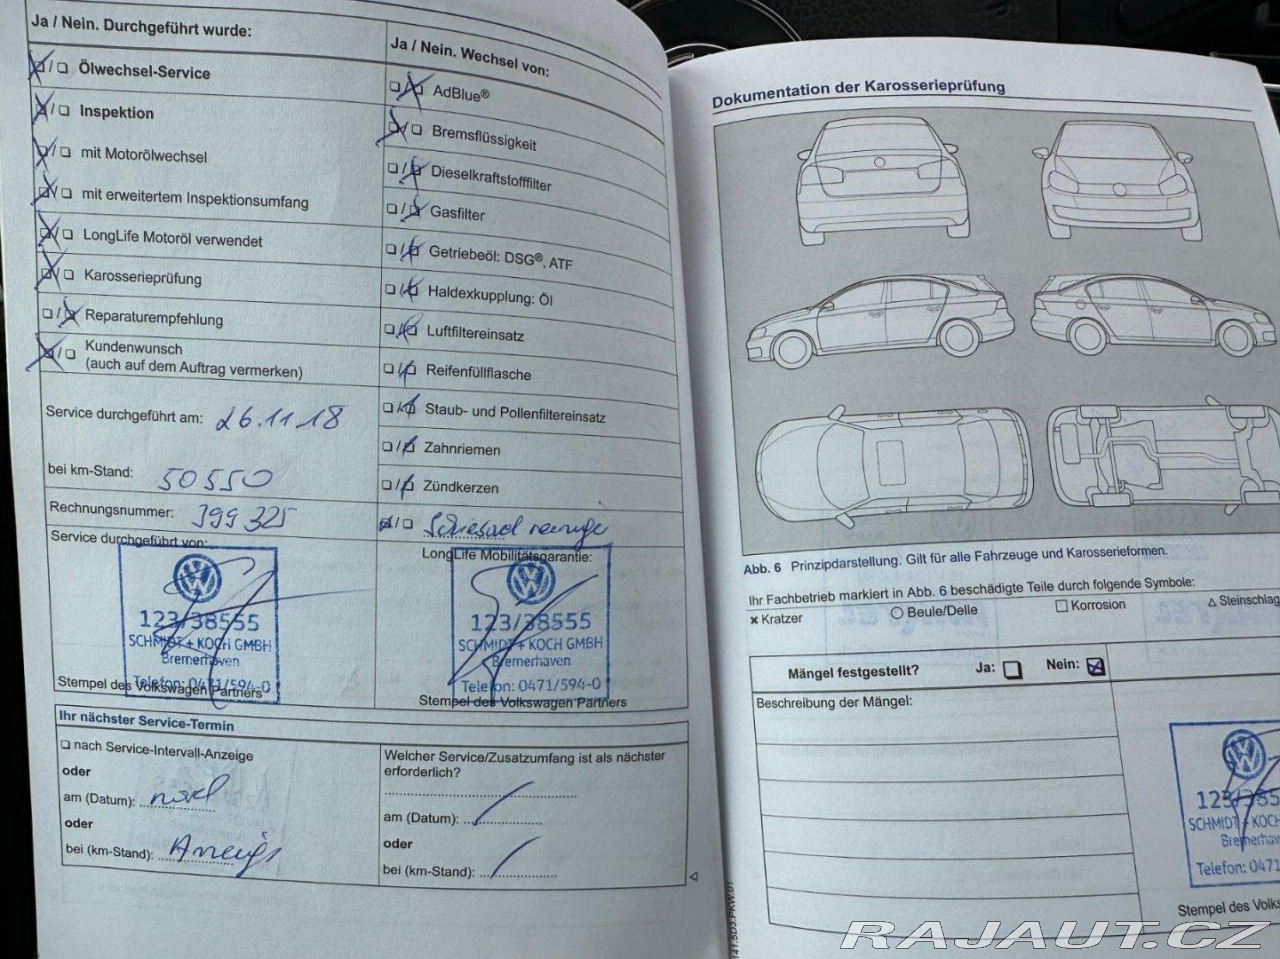 Ja / Nein. Durchgeführt wurde:
Ölwechsel-Service
Inspektion
mit Motorölwechsel
mit erweitertem Inspektionsumfang
LongLife Motoröl verwendet
Karosserieprüfung
Reparaturempfehlung
Kundenwunsch
(auch auf dem Auftrag vermerken)
Service durchgeführt am: 26.11.18
bei km-Stand: 50550
Rechnungsnummer: 399325
Service durchgeführt von:
123/38555
SCHMIDT + KOCH GMBH
Bremerhaven
Telefon: 0471/594-0
Stempel des Volkswagen Partners
Ja / Nein. Wechsel von:
AdBlue®
Bremsflüssigkeit
Dieselkraftstofffilter
Gasfilter
Getriebeöl: DSG®, ATF
Haldexkupplung: Öl
Luftfiltereinsatz
Reifenfüllflasche
Staub- und Pollenfiltereinsatz
Zahnriemen
Zündkerzen
LongLife Mobilitätsgarantie:
123/38555
SCHMIDT + KOCH GMBH
Bremerhaven
Telefon: 0471/594-0
Stempel des Volkswagen Partners
Ihr nächster Service-Termin
nach Service-Intervall-Anzeige
oder
am (Datum):
oder
bei (km-Stand):
Welcher Service/Zusatzumfang ist als nächster
erforderlich?
am (Datum):
oder
bei (km-Stand):
Dokumentation der Karosserieprüfung
Abb. 6 Prinzipdarstellung. Gilt für alle Fahrzeuge und Karosserieformen.
Ihr Fachbetrieb markiert in Abb. 6 beschädigte Teile durch folgende Symbole:
Kratzer
Beule/Delle
Korrosion
Steinschlag
Mängel festgestellt? Ja: Nein:
Beschreibung der Mängel:
SCHMIDT + KOCH
Telefon: 0471
Stempel des Volks
RAJAUT.CZ